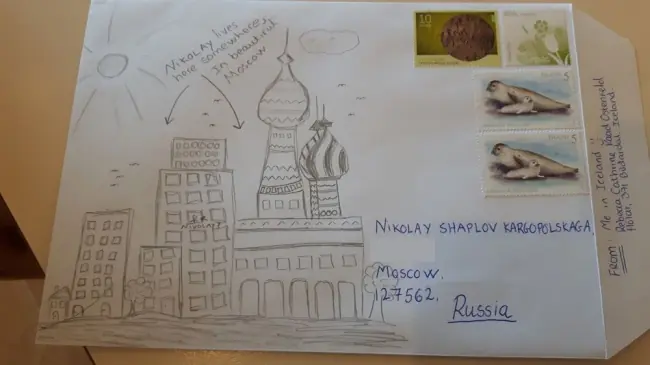 NIKOLAY lives
here somewhere
In beautiful
Moscow
NIKOLAY
10
5
5
NIKOLAY SHAPLOV KARGOPOLSKAGA,
Moscow.
127562.
Russia
FROM: Me in Iceland :)
Rebecca Cathrine Kaad Ostenfeld
Hólum, 371 Búðardal Iceland